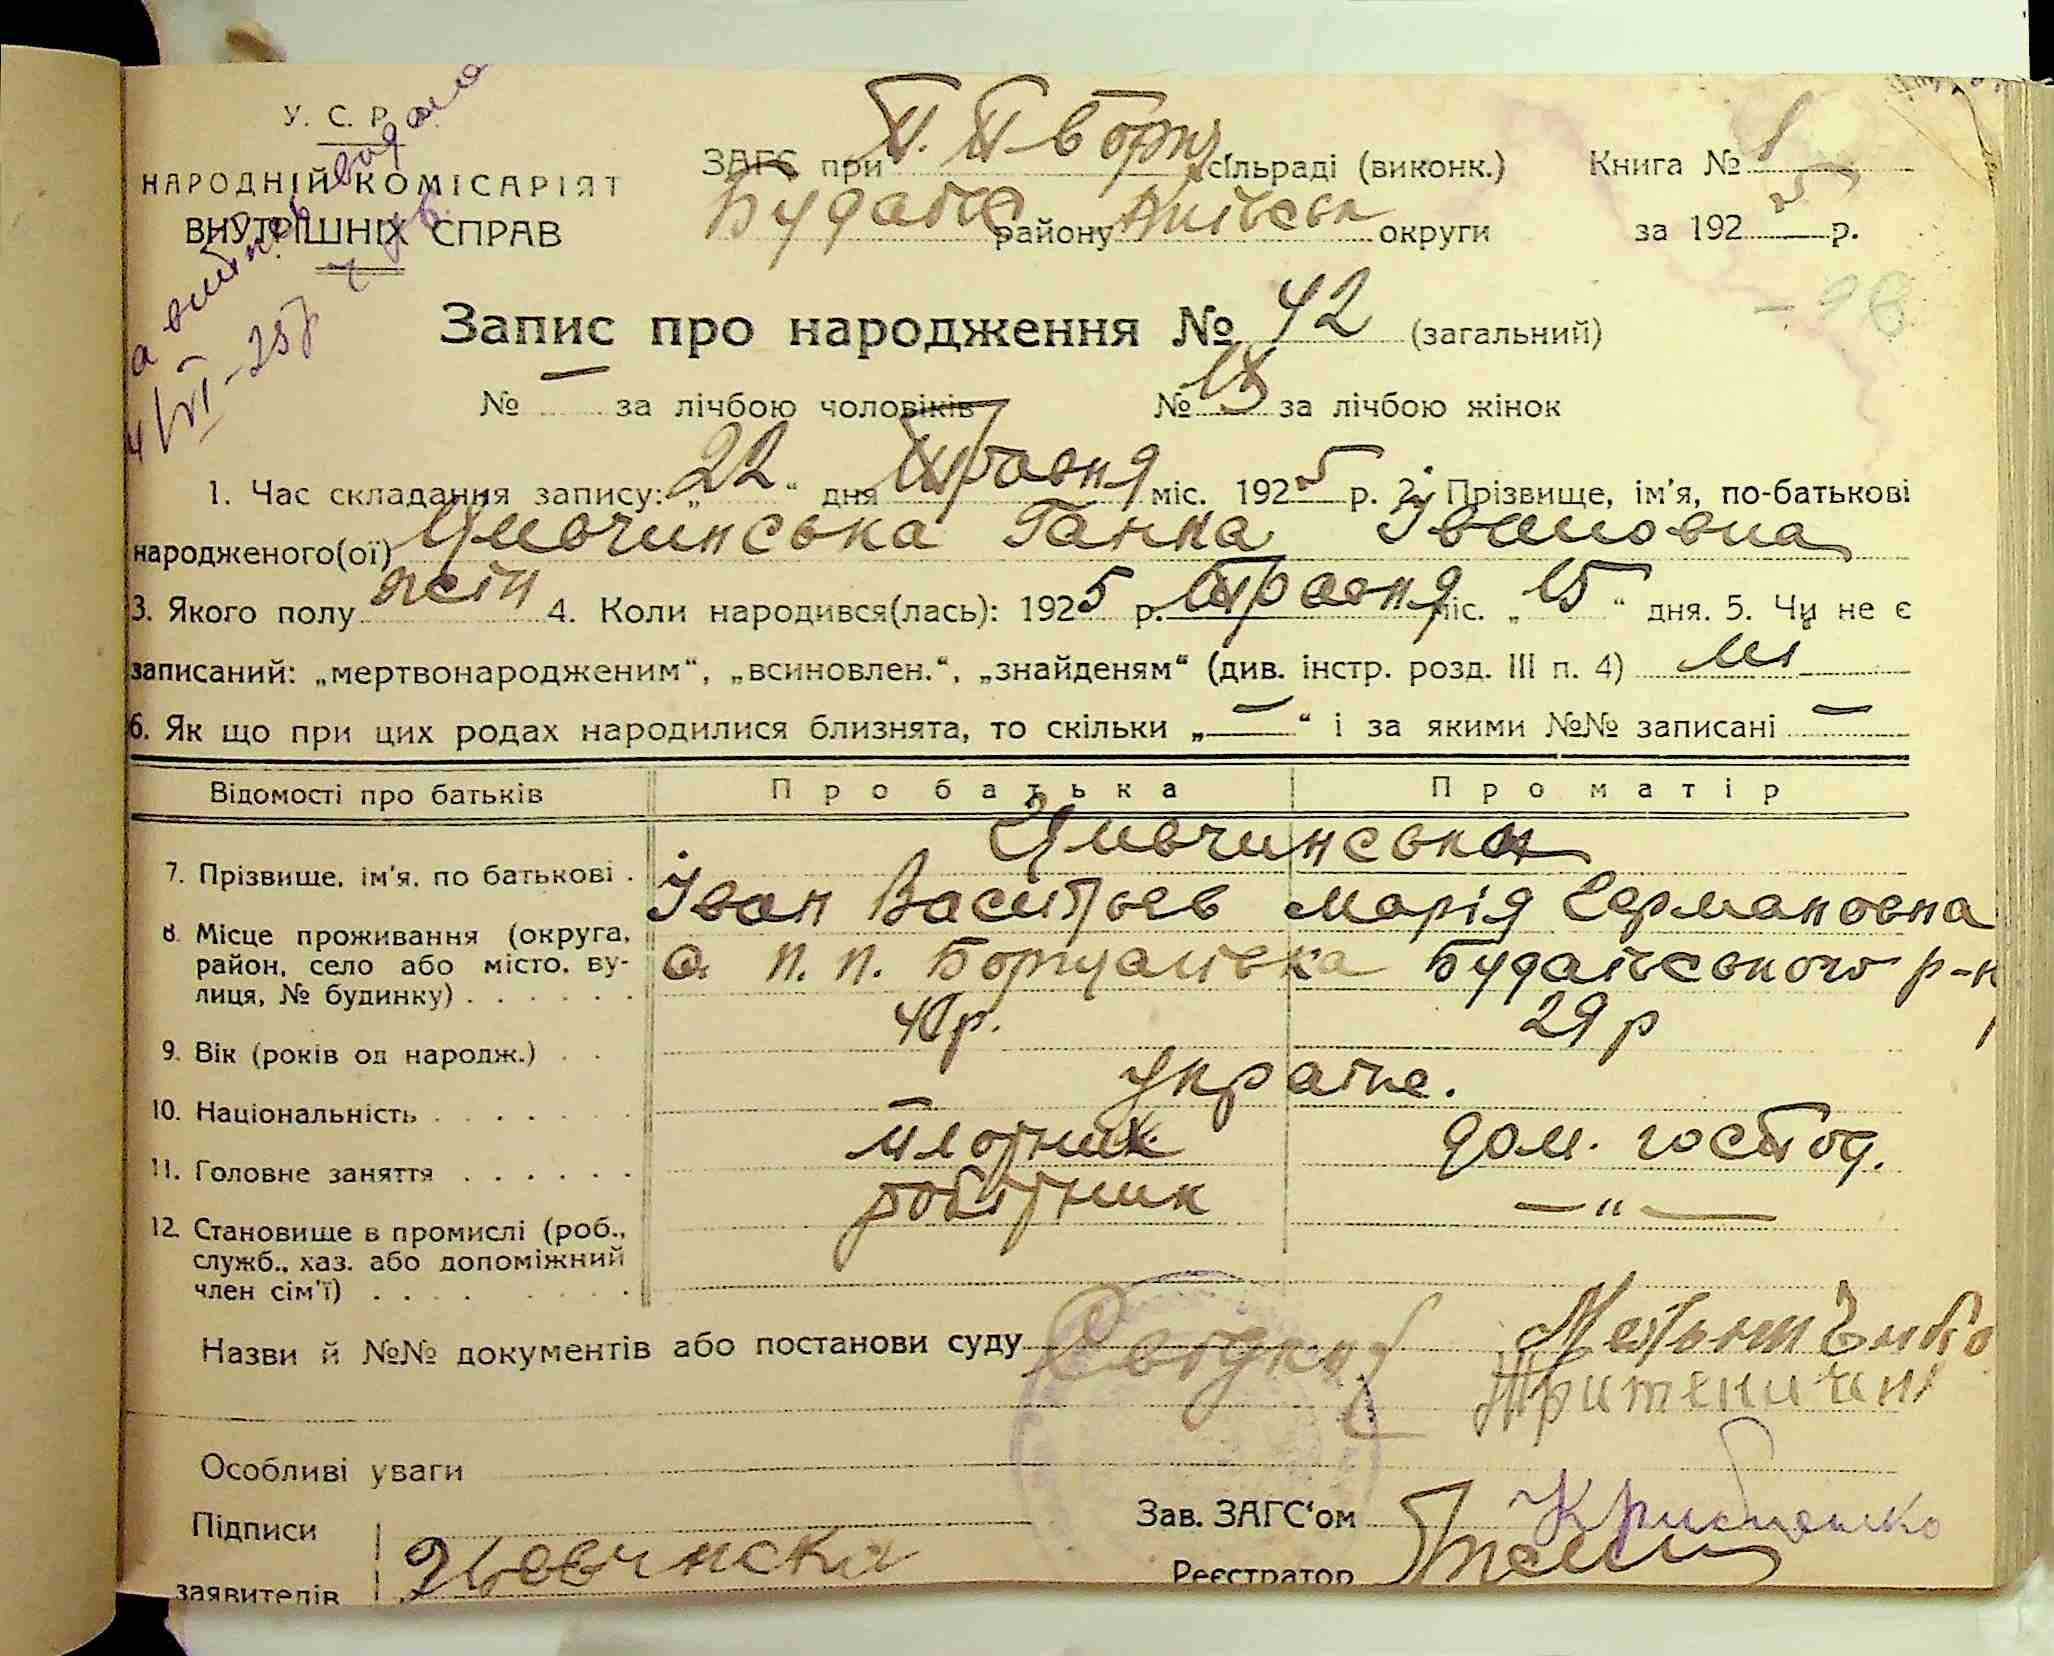 У. С. Р.
НАРОДНІЙ КОМІСАРІЯТ
ВНУТРІШНІХ СПРАВ
4/VI-25р
ЗАГС при П. П Борщ сільраді (виконк.) Книга № 1
Будаїв району Київськ округи за 1925 р.
Запис про народження № 42 (загальний)
№ — за лічбою чоловіків № 18 за лічбою жінок
1. Час складання запису: „22“ дня Травня міс. 1925 р. 2. Прізвище, ім'я, по-батькові
народженого(ої) Цивчинська Ганна Івановна
3. Якого полу жін 4. Коли народився(лась): 1925 р. Травня міс. „15“ дня. 5. Чи не є
записаний: „мертвонародженим“, „всиновлен.“, „знайденям“ (див. інстр. розд. III п. 4) ні
6. Як що при цих родах народилися близнята, то скільки „—“ і за якими №№ записані —
Відомості про батьків Про батька Про матір
7. Прізвище, ім'я, по батькові . Цивчинськи
Іван Васильев Марія Германовна
8. Місце проживання (округа, район, село або місто, вулиця, № будинку) . . . . . . с. П. П. Борщагівка Будаївського р-н
9. Вік (років од народж.) . . 40 р. 29 р
10. Національність . . . . . . . україне.
11. Головне заняття . . . . . . плотник дом. господ.
12. Становище в промислі (роб., служб., хаз. або допоміжний член сім'ї) . . . . робітник — „ —
Назви й №№ документів або постанови суду
Особливі уваги
Підписи
заявителів
Зав. ЗАГС'ом
Реєстратор